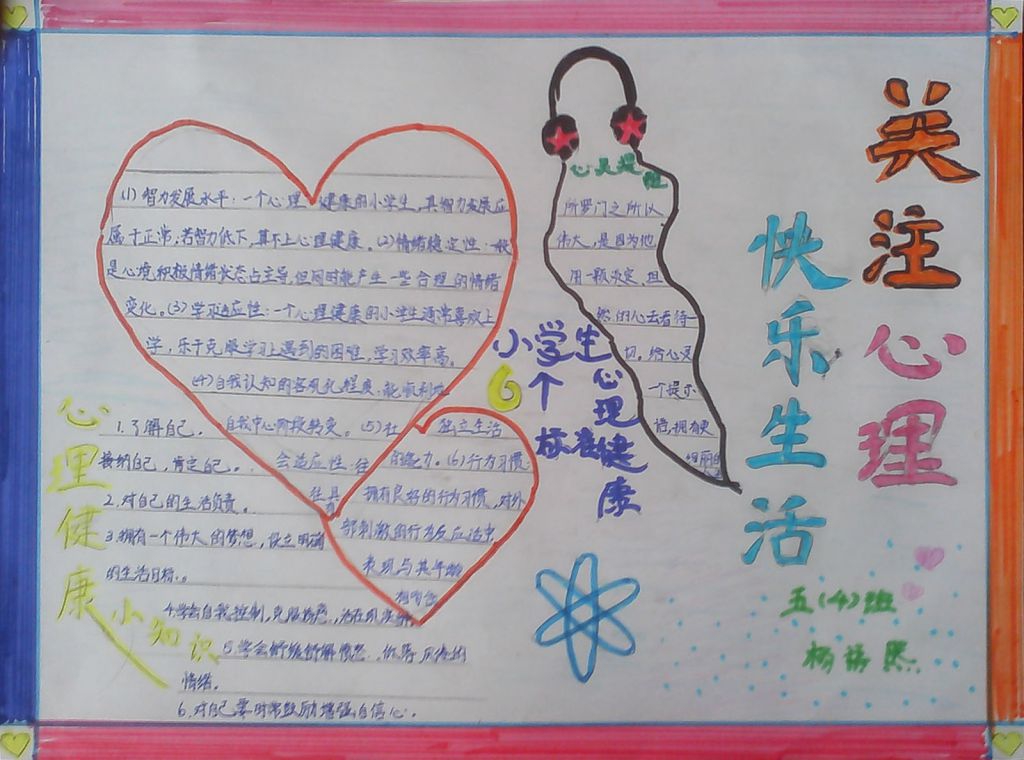 关注心理
快乐生活
五(4)班
心灵提醒
所罗门之所以
伟大,是因为他
用一颗淡定,坦
然的心去看待一
切。给心灵
一个提示
拥有更
小学生
6个
心理健康
标准
(1)智力发展水平:一个心理健康的小学生,其智力发展应
属于正常;若智力低下,算不上心理健康。(2)情绪稳定性:一般
是心境,积极情绪状态占主导,但同时能产生一些合理的情绪
变化。(3)学习适应性:一个心理健康的小学生通常喜欢上
学,乐于克服学习上遇到的困难,学习效率高。
(4)自我认知的客观化程度:能顺利地
自我中心阶段转变。(5)社
会适应性:往
往具
独立生活
的能力。(6)行为习惯:
拥有良好的行为习惯,对外
部刺激的行为反应适中,
表现与其年龄
心理健康小知识
1.了解自己,
接纳自己,肯定自己。
2.对自己的生活负责。
3.拥有一个伟大的梦想,设立明确
的生活目标。
4.学会自我控制,克服
5.学会
情绪。
6.对自己要时常鼓励增强自信心。